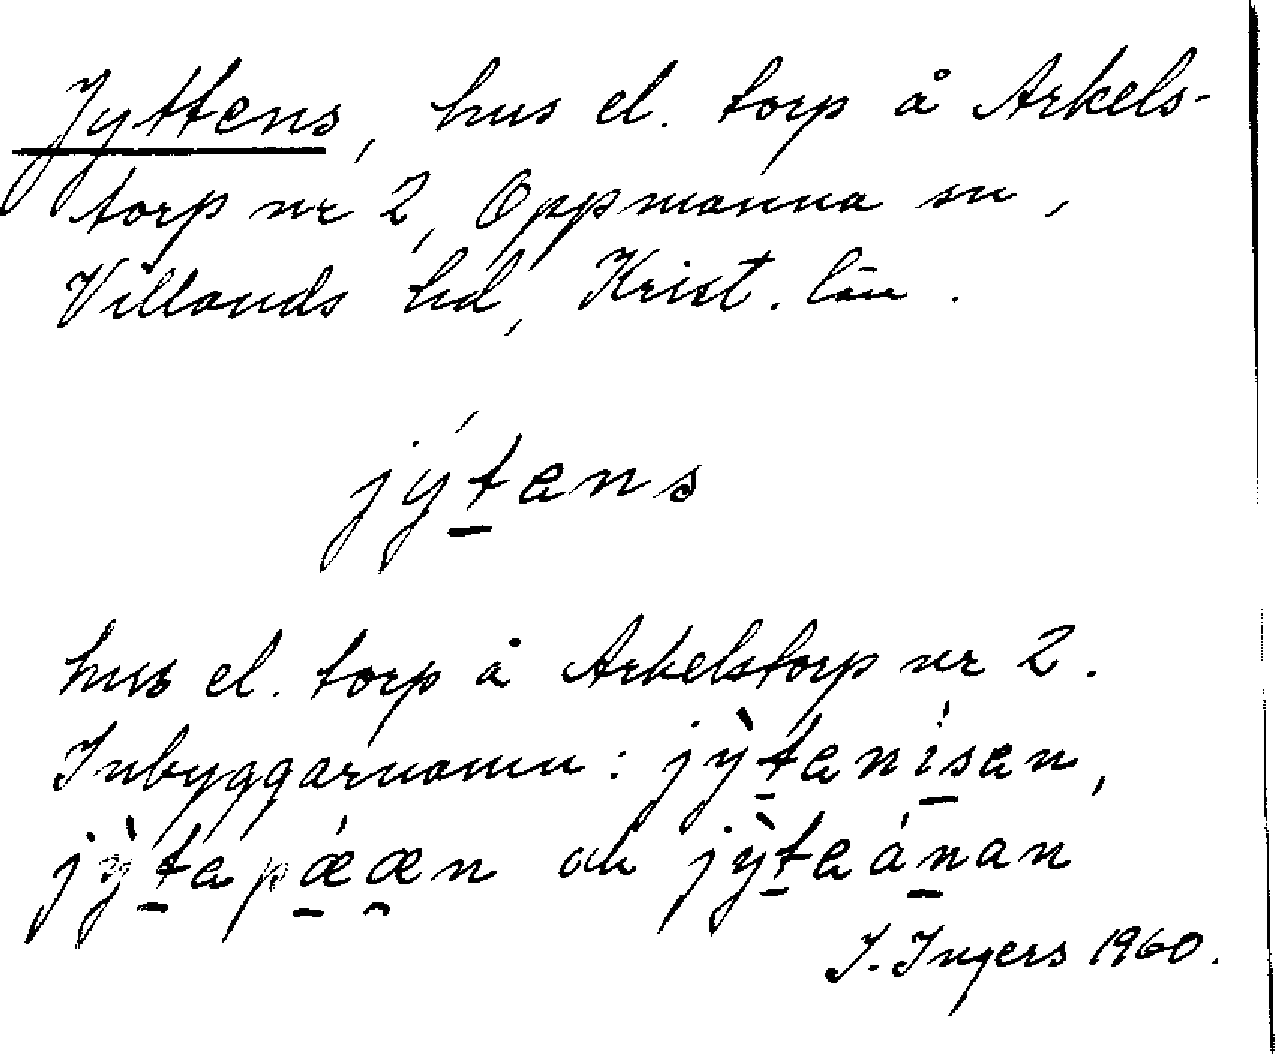 Jyttens, hus el. torp å Arkels-
torp nr 2, Oppmanna sn,
Villands hd, Krist. län.
jýt̲ens
hus el. torp å Arkelstorp nr 2.
Inbyggarnamn: jỳt̲enís̲en,
jỳt̲epǽ̲æ̯n och jỳt̲eán̲an
I. Ingers 1960.